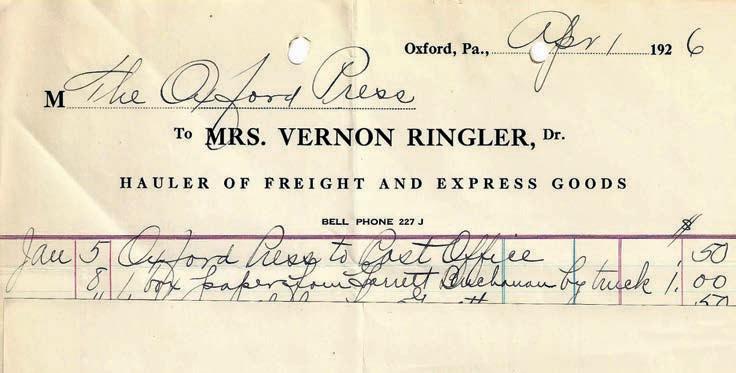 Oxford, Pa., Apr 1 1926
M The Oxford Press
To MRS. VERNON RINGLER, Dr.
HAULER OF FREIGHT AND EXPRESS GOODS
BELL PHONE 227 J
$
Jan 5 Oxford Press to Post Office .50
8 1 box paper from Garrett Buchanan by truck 1.00
" 50